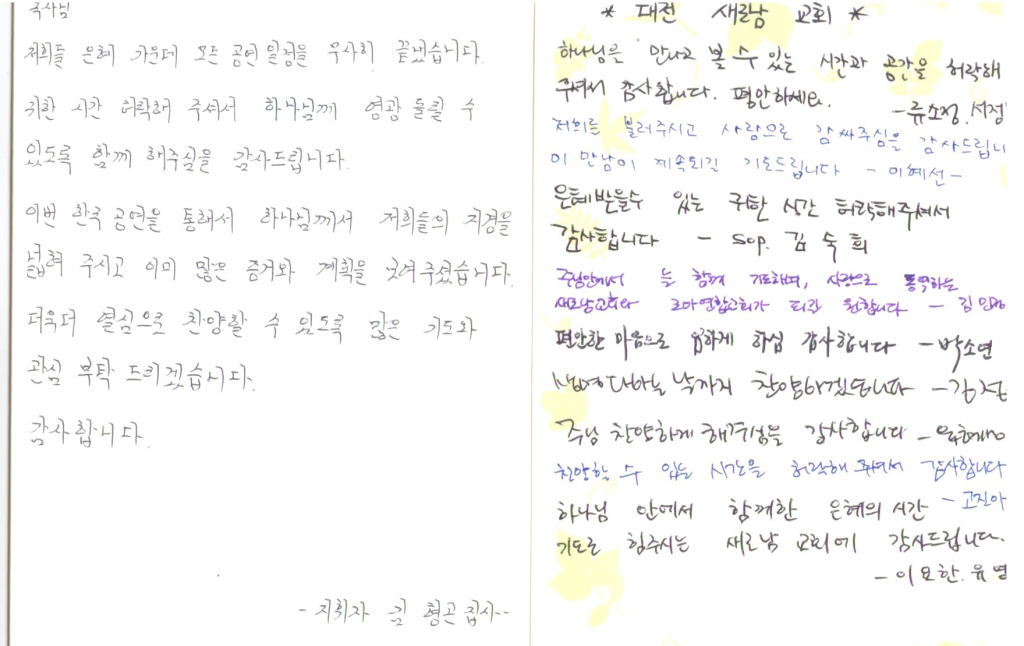 저희들 은혜 가운데 모든 공연 일정을 무사히 끝냈습니다.
귀한 시간 허락해 주셔서 하나님께 영광 돌릴 수
있도록 함께 해주심을 감사드립니다.
이번 한국 공연을 통해서 하나님께서 저희들의 지경을
넓혀 주시고 이미 많은 증거와 계획을 주셨습니다.
더욱더 열심으로 찬양할 수 있도록 많은 기도와
관심 부탁 드리겠습니다.
감사합니다.
- 지휘자 김 형곤 집사--
* 대전 새로남 교회 *
하나님을 만나고 볼 수 있는 시간과 공간을 허락해
주셔서 감사합니다. 평안하세요.
- 류소정, 서정
저희를 불러주시고 사랑으로 감싸주심을 감사드립니
이 만남이 계속되길 기도드립니다 - 이혜선 -
은혜받을수 있는 귀한 시간 허락해주셔서
감사합니다 - sop. 김 숙희
주님안에서 늘 함께 기도하며, 사랑으로 동역하는
새로남교회와 로마연합교회가 되길 원합니다 - 김
편안한 마음으로 하게 하심 감사합니다 - 박소연
찬양하겠습니다 - 김
주님 찬양하게 해주심을 감사합니다 -
찬양할 수 있는 시간을 허락해 주셔서 감사합니다
- 고진아
하나님 안에서 함께한 은혜의 시간
기도로 힘주시는 새로남 교회에 감사드립니다.
- 이요한. 유영